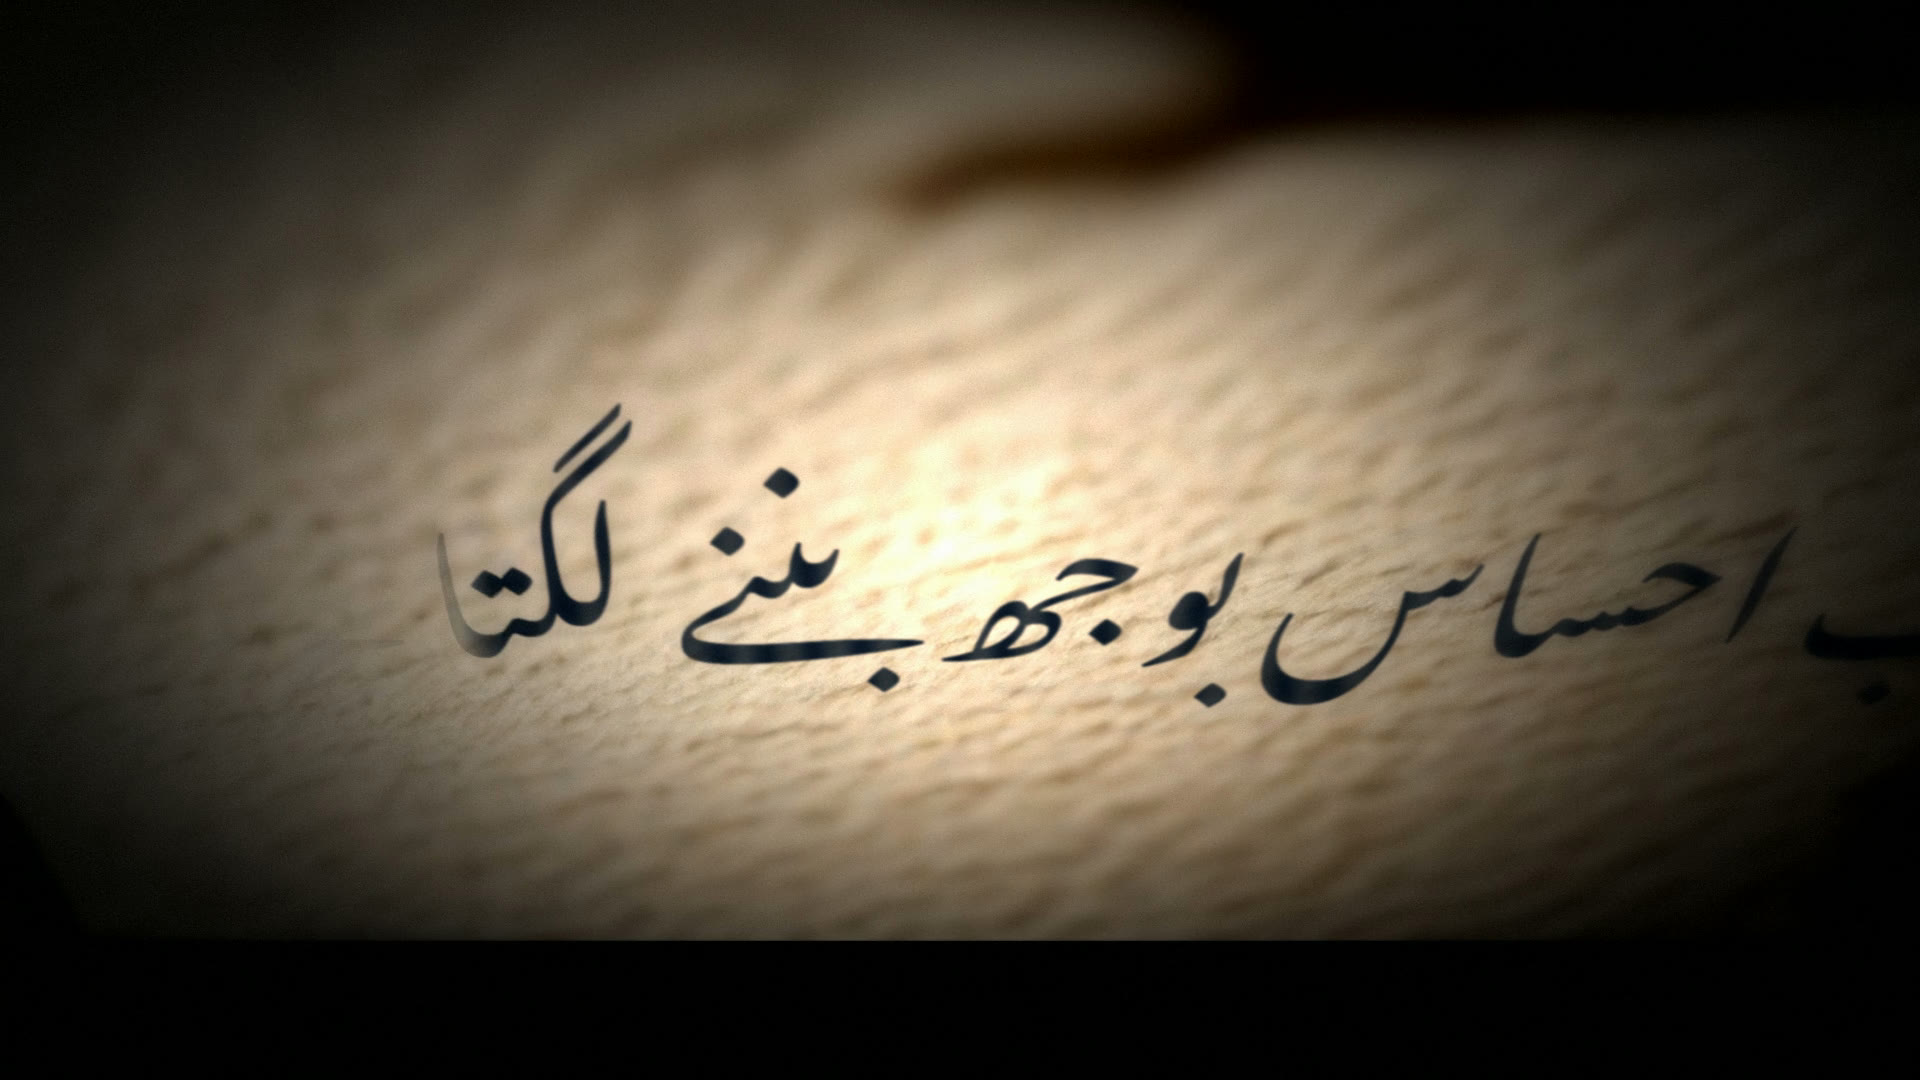 احساس بوجھ بننے لگتا